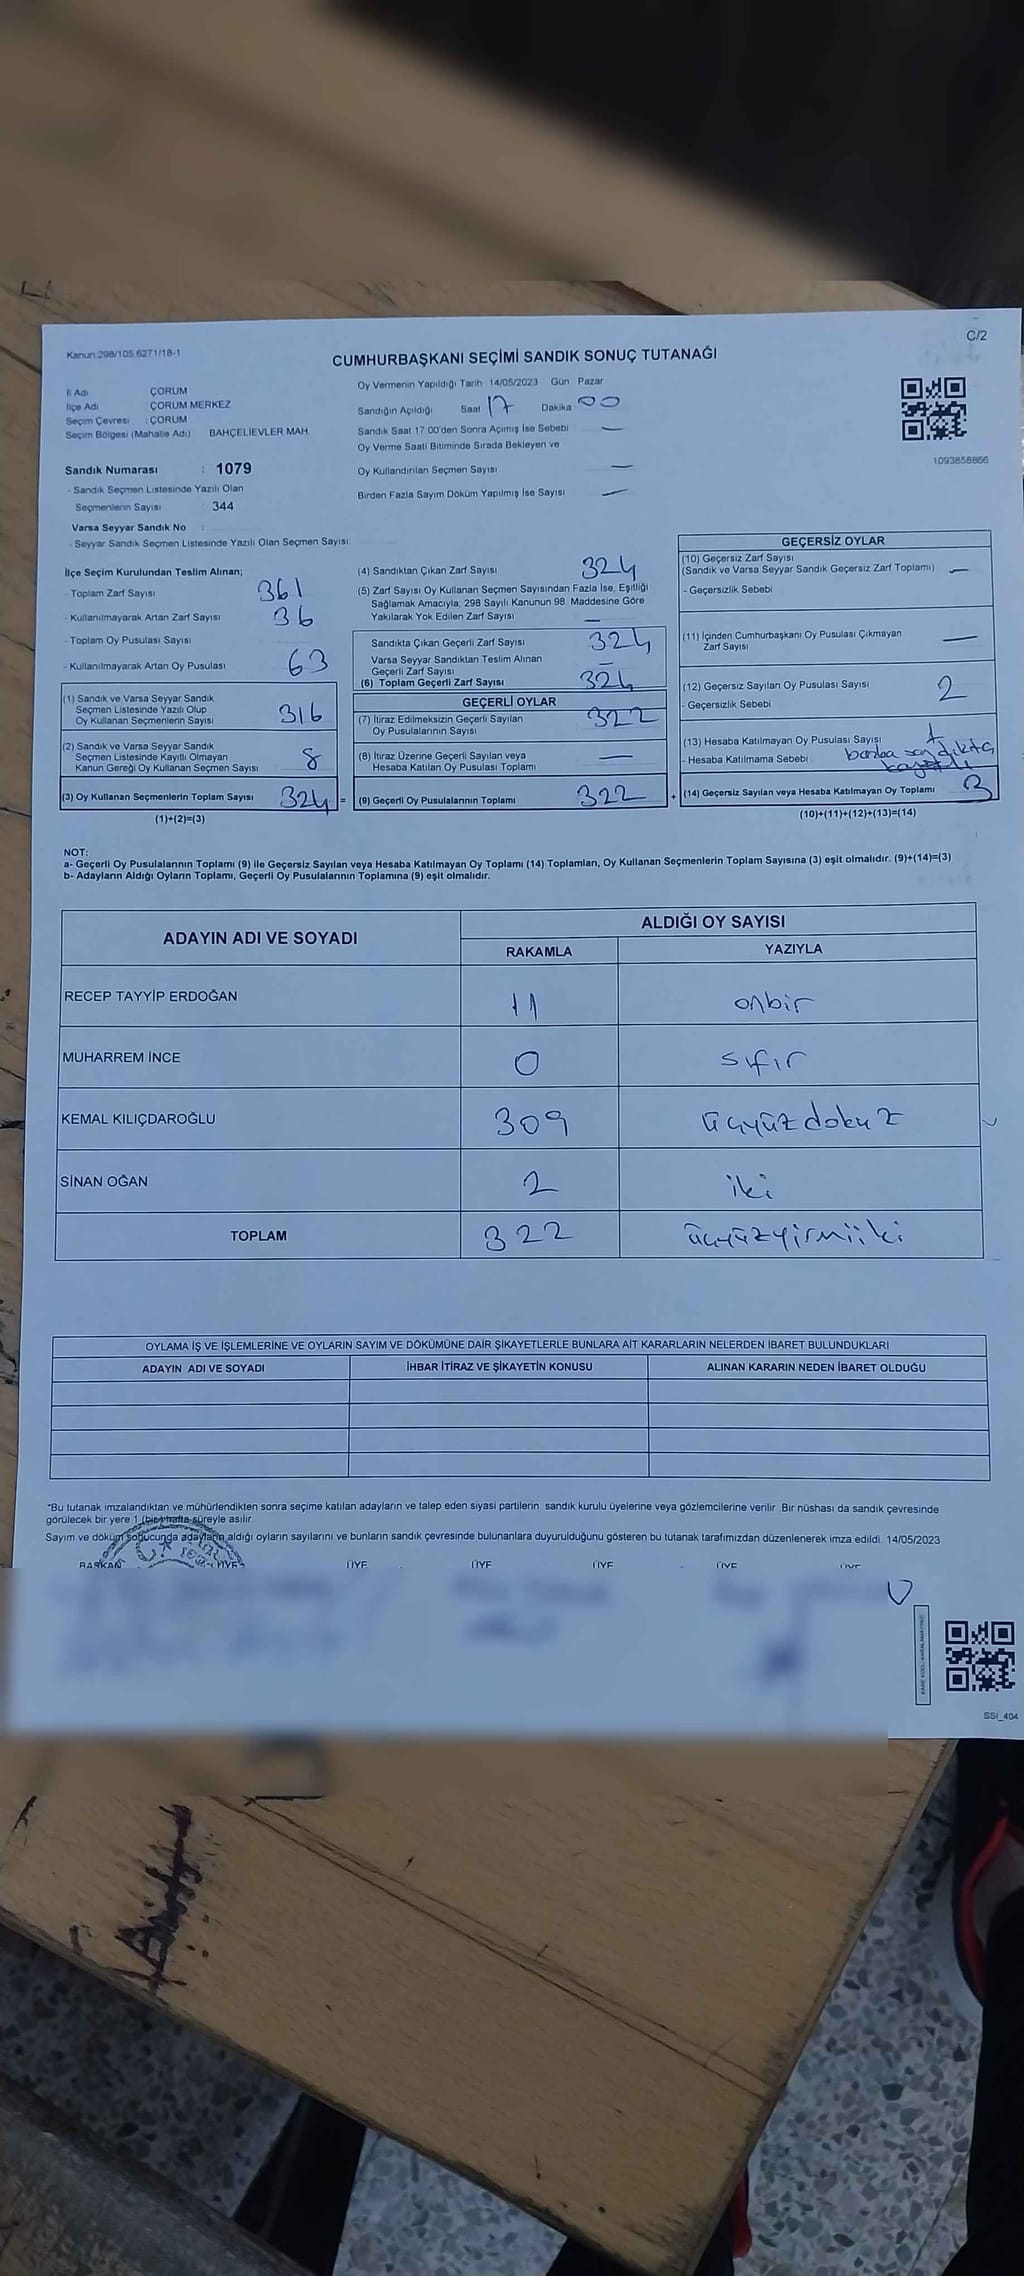 C/2
Kanun:298/105,6271/18-1
CUMHURBAŞKANI SEÇİMİ SANDIK SONUÇ TUTANAĞI
İl Adı ÇORUM
İlçe Adı ÇORUM MERKEZ
Seçim Çevresi : ÇORUM
Seçim Bölgesi (Mahalle Adı) BAHÇELİEVLER MAH.
Sandık Numarası : 1079
- Sandık Seçmen Listesinde Yazılı Olan
Seçmenlerin Sayısı : 344
Varsa Seyyar Sandık No :
- Seyyar Sandık Seçmen Listesinde Yazılı Olan Seçmen Sayısı:
Oy Vermenin Yapıldığı Tarih :14/05/2023 Gün : Pazar
Sandığın Açıldığı Saat 17 Dakika 00
Sandık Saat 17:00'den Sonra Açılmış İse Sebebi —
Oy Verme Saati Bitiminde Sırada Bekleyen ve
Oy Kullandırılan Seçmen Sayısı —
Birden Fazla Sayım Döküm Yapılmış İse Sayısı —
1093858866
İlçe Seçim Kurulundan Teslim Alınan;
- Toplam Zarf Sayısı 361
- Kullanılmayarak Artan Zarf Sayısı 36
- Toplam Oy Pusulası Sayısı
- Kullanılmayarak Artan Oy Pusulası 63
(1) Sandık ve Varsa Seyyar Sandık
Seçmen Listesinde Yazılı Olup
Oy Kullanan Seçmenlerin Sayısı 316
(2) Sandık ve Varsa Seyyar Sandık
Seçmen Listesinde Kayıtlı Olmayan
Kanun Gereği Oy Kullanan Seçmen Sayısı 8
(3) Oy Kullanan Seçmenlerin Toplam Sayısı 324 =
(1)+(2)=(3)
(4) Sandıktan Çıkan Zarf Sayısı 324
(5) Zarf Sayısı Oy Kullanan Seçmen Sayısından Fazla İse, Eşitliği
Sağlamak Amacıyla; 298 Sayılı Kanunun 98. Maddesine Göre
Yakılarak Yok Edilen Zarf Sayısı —
Sandıkta Çıkan Geçerli Zarf Sayısı 324
Varsa Seyyar Sandıktan Teslim Alınan
Geçerli Zarf Sayısı —
(6) Toplam Geçerli Zarf Sayısı 324
GEÇERLİ OYLAR
(7) İtiraz Edilmeksizin Geçerli Sayılan
Oy Pusulalarının Sayısı 322
(8) İtiraz Üzerine Geçerli Sayılan veya
Hesaba Katılan Oy Pusulası Toplamı —
(9) Geçerli Oy Pusulalarının Toplamı 322 +
GEÇERSİZ OYLAR
(10) Geçersiz Zarf Sayısı
(Sandık ve Varsa Seyyar Sandık Geçersiz Zarf Toplamı) —
- Geçersizlik Sebebi
(11) İçinden Cumhurbaşkanı Oy Pusulası Çıkmayan
Zarf Sayısı —
(12) Geçersiz Sayılan Oy Pusulası Sayısı 2
- Geçersizlik Sebebi
(13) Hesaba Katılmayan Oy Pusulası Sayısı 1
- Hesaba Katılmama Sebebi
(14) Geçersiz Sayılan veya Hesaba Katılmayan Oy Toplamı 3
(10)+(11)+(12)+(13)=(14)
NOT:
a- Geçerli Oy Pusulalarının Toplamı (9) ile Geçersiz Sayılan veya Hesaba Katılmayan Oy Toplamı (14) Toplamları, Oy Kullanan Seçmenlerin Toplam Sayısına (3) eşit olmalıdır. (9)+(14)=(3)
b- Adayların Aldığı Oyların Toplamı, Geçerli Oy Pusulalarının Toplamına (9) eşit olmalıdır.
ADAYIN ADI VE SOYADI
ALDIĞI OY SAYISI
RAKAMLA YAZIYLA
RECEP TAYYİP ERDOĞAN 11 onbir
MUHARREM İNCE 0 sıfır
KEMAL KILIÇDAROĞLU 309 üçyüzdokuz
SİNAN OĞAN 2 iki
TOPLAM 322 üçyüzyirmiiki
OYLAMA İŞ VE İŞLEMLERİNE VE OYLARIN SAYIM VE DÖKÜMÜNE DAİR ŞİKAYETLERLE BUNLARA AİT KARARLARIN NELERDEN İBARET BULUNDUKLARI
ADAYIN ADI VE SOYADI İHBAR İTİRAZ VE ŞİKAYETİN KONUSU ALINAN KARARIN NEDEN İBARET OLDUĞU
*Bu tutanak imzalandıktan ve mühürlendikten sonra seçime katılan adayların ve talep eden siyasi partilerin sandık kurulu üyelerine veya gözlemcilerine verilir. Bir nüshası da sandık çevresinde
görülecek bir yere 1 (bir) hafta süreyle asılır.
Sayım ve döküm sonucunda adayların aldığı oyların sayılarını ve bunların sandık çevresinde bulunanlara duyurulduğunu gösteren bu tutanak tarafımızdan düzenlenerek imza edildi. 14/05/2023
BAŞKAN ÜYE ÜYE ÜYE ÜYE ÜYE ÜYE
KARE KODU KARALAMAYINIZ
SSI_404